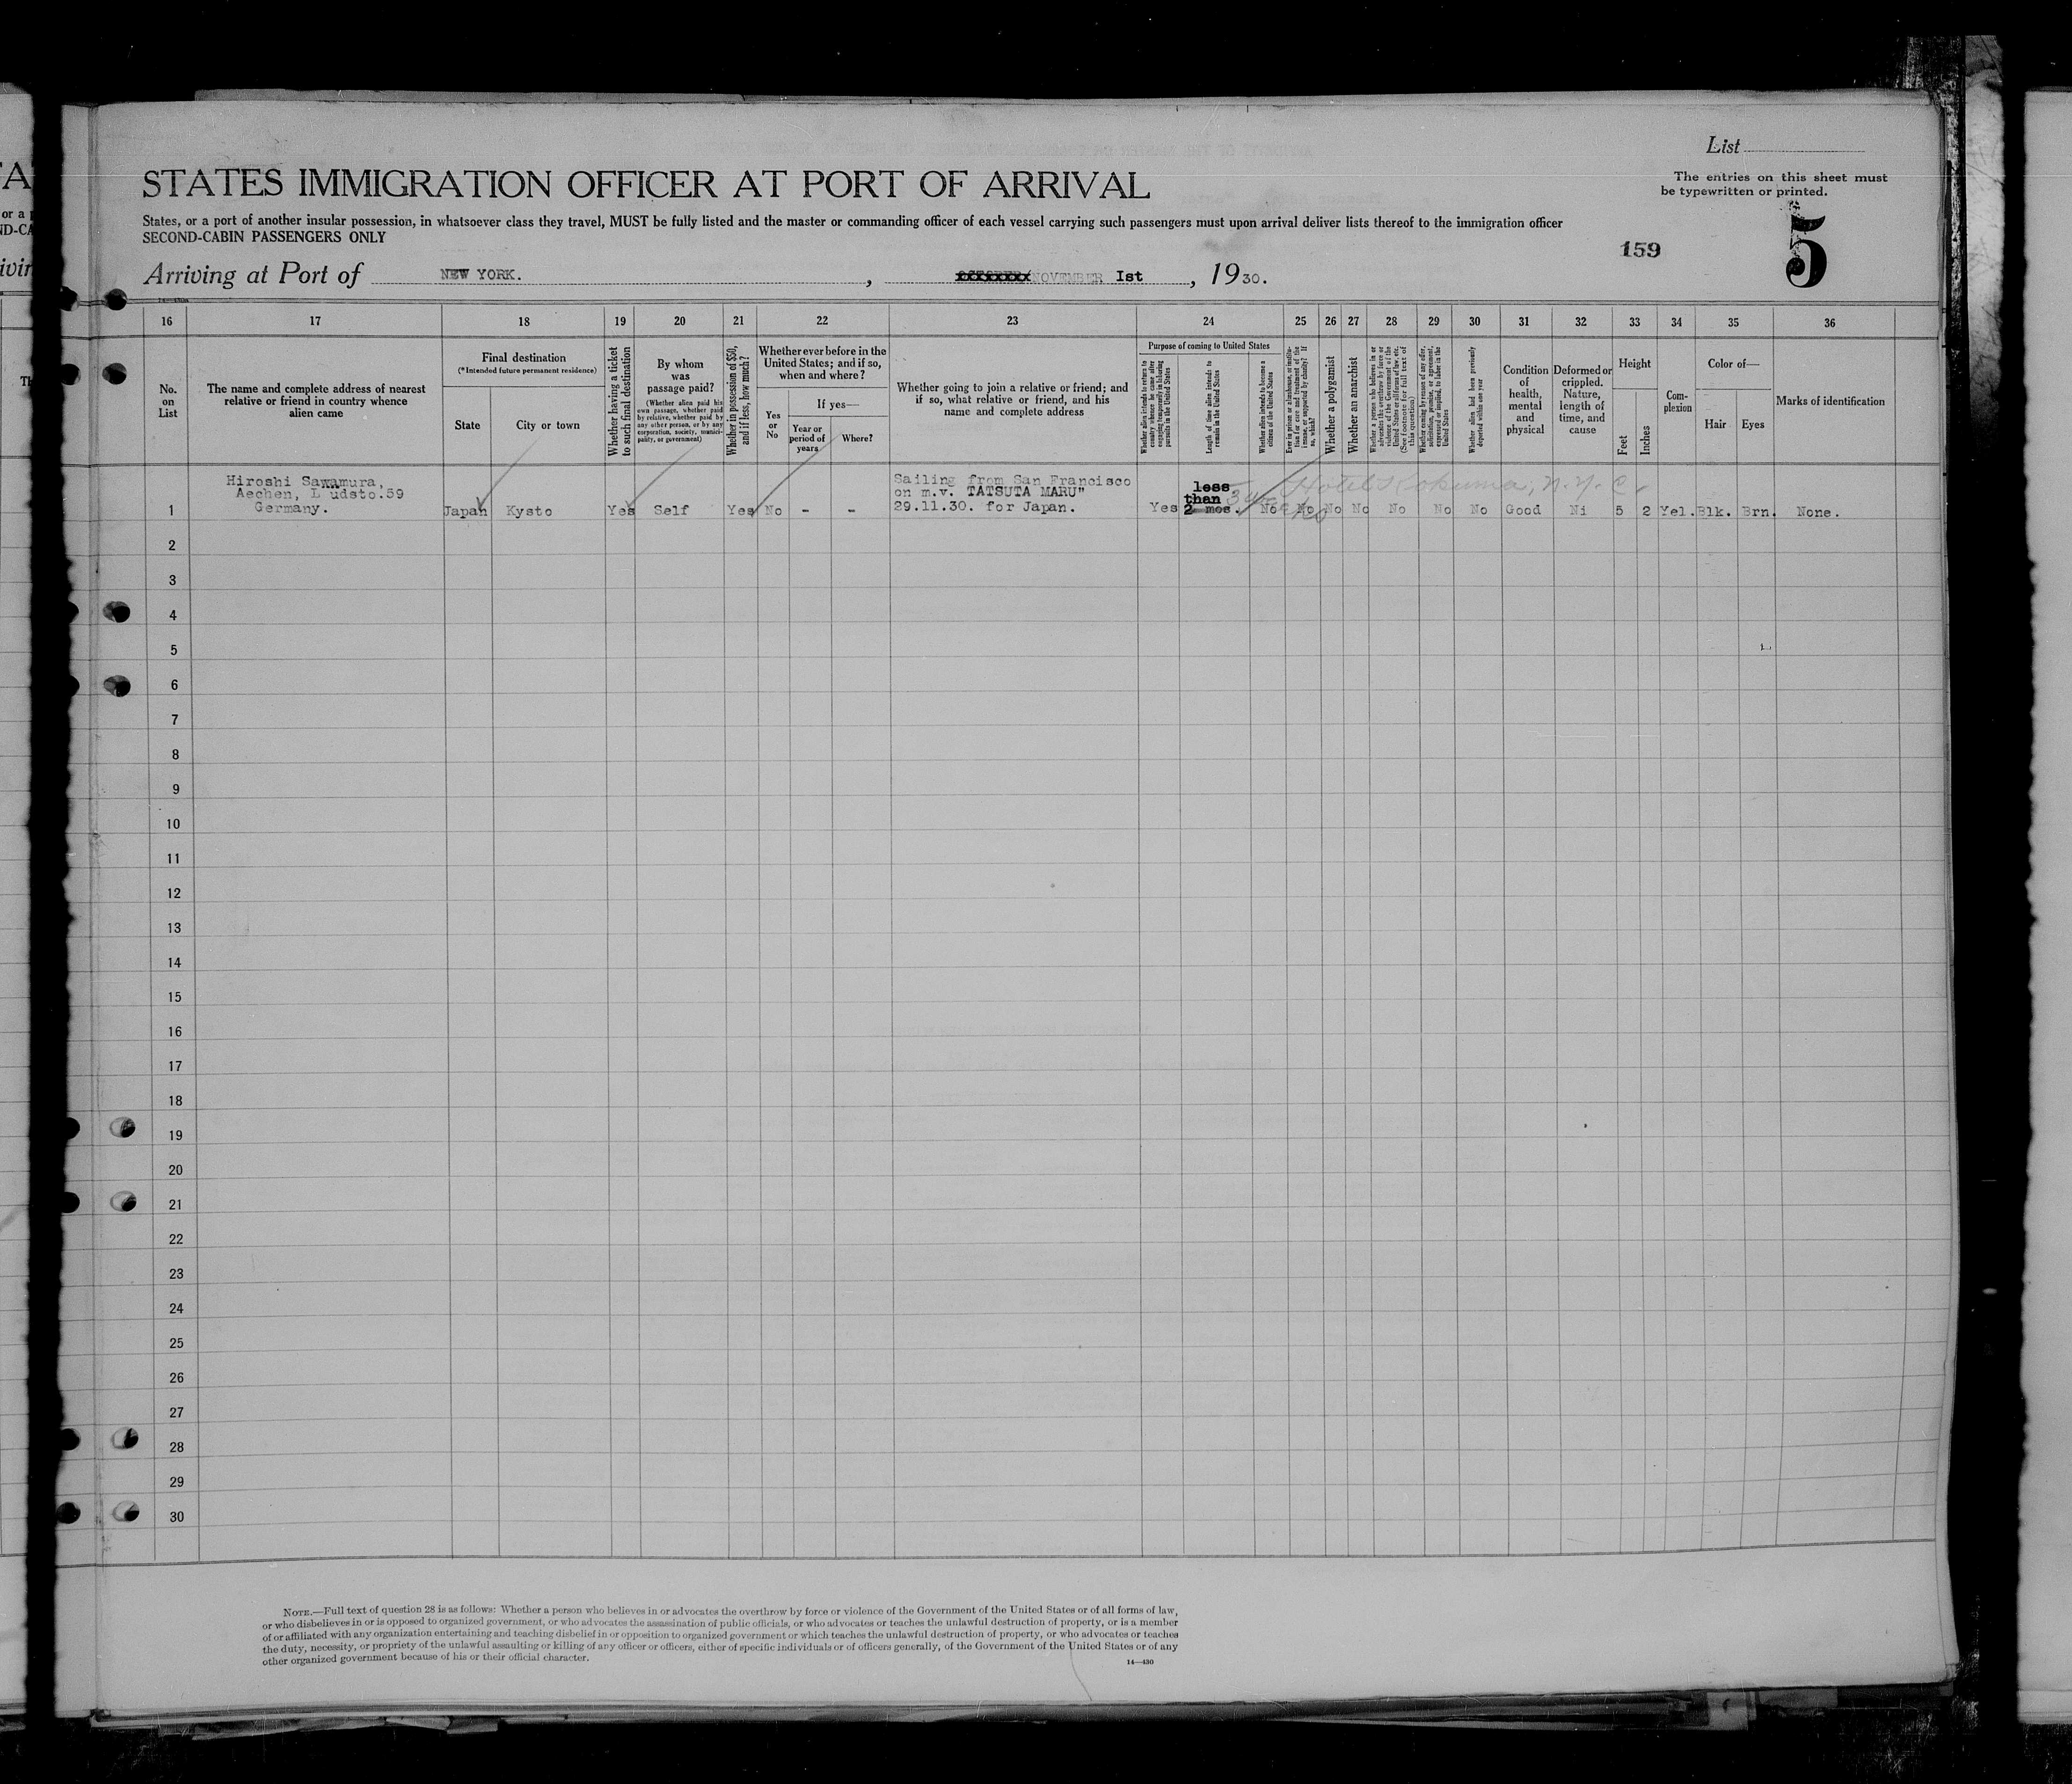 List
The entries on this sheet must
be typewritten or printed.
STATES IMMIGRATION OFFICER AT PORT OF ARRIVAL
States, or a port of another insular possession, in whatsoever class they travel, MUST be fully listed and the master or commanding officer of each vessel carrying such passengers must upon arrival deliver lists thereof to the immigration officer
SECOND-CABIN PASSENGERS ONLY
159
5
Arriving at Port of NEW YORK. , NOVEMBER Ist , 1930.
16 17 18 19 20 21 22 23 24 25 26 27 28 29 30 31 32 33 34 35 36
No.
on
List
The name and complete address of nearest
relative or friend in country whence
alien came
Final destination
(*Intended future permanent residence)
State
City or town
Whether having a ticket
to such final destination
By whom
was
passage paid?
(Whether alien paid his
own passage, whether paid
by relative, whether paid by
any other person, or by any
corporation, society, munici-
pality, or government)
Whether in possession of $50,
and if less, how much?
Whether ever before in the
United States; and if so,
when and where?
Yes
or
No
If yes—
Year or
period of
years
Where?
Whether going to join a relative or friend; and
if so, what relative or friend, and his
name and complete address
Purpose of coming to United States
Whether alien intends to return to
country whence he came after
engaging temporarily in laboring
pursuits in the United States
Length of time alien intends to
remain in the United States
Whether alien intends to become a
citizen of the United States
Ever in prison or almshouse, or institu-
tion for care and treatment of the
insane, or supported by charity? If
so, which?
Whether a polygamist
Whether an anarchist
Whether a person who believes in or
advocates the overthrow by force or
violence of the Government of the
United States or all forms of law, etc.
(See footnote for full text of
this question)
Whether coming by reason of any offer,
solicitation, promise, or agreement,
expressed or implied, to labor in the
United States
Whether alien had been previously
deported within one year
Condition
of
health,
mental
and
physical
Deformed or
crippled.
Nature,
length of
time, and
cause
Height
Feet
Inches
Com-
plexion
Color of—
Hair
Eyes
Marks of identification
Hiroshi Sawamura,
Aechen, L udsto.59
Germany.
Sailing from San Francisco
on m.v. TATSUTA MARU"
29.11.30. for Japan.
less
than
2 mos.
Hotel N.Y.C
1 Japan Kysto Yes Self Yes No - - Yes No No No No No No No Good Ni 5 2 Yel. Blk. Brn. None.
2
3
4
5
6
7
8
9
10
11
12
13
14
15
16
17
18
19
20
21
22
23
24
25
26
27
28
29
30
NOTE.—Full text of question 28 is as follows: Whether a person who believes in or advocates the overthrow by force or violence of the Government of the United States or of all forms of law,
or who disbelieves in or is opposed to organized government, or who advocates the assassination of public officials, or who advocates or teaches the unlawful destruction of property, or is a member
of or affiliated with any organization entertaining and teaching disbelief in or opposition to organized government or which teaches the unlawful destruction of property, or who advocates or teaches
the duty, necessity, or propriety of the unlawful assaulting or killing of any officer or officers, either of specific individuals or of officers generally, of the Government of the United States or of any
other organized government because of his or their official character.
14—430